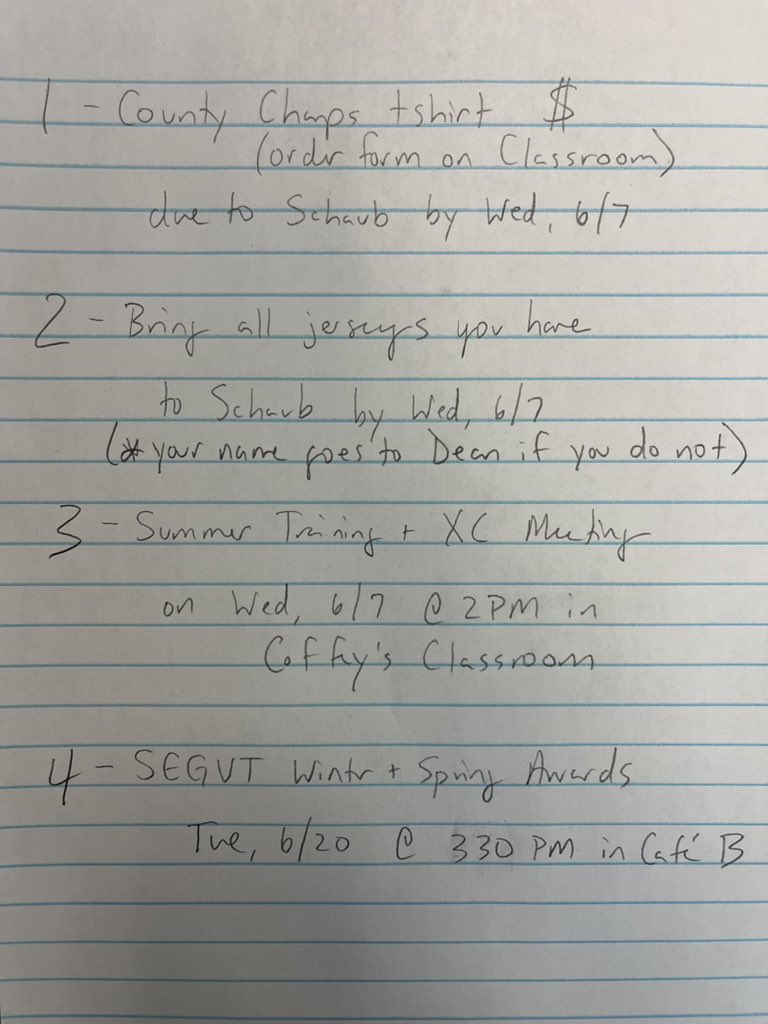 1 - County Champs tshirt $
(order form on Classroom)
due to Schaub by Wed, 6/7
2 - Bring all jerseys you have
to Schaub by Wed, 6/7
(* your name goes to Dean if you do not)
3 - Summer Training + XC Meeting
on Wed, 6/7 @ 2PM in
Coffey's Classroom
4 - SEGUT Winter + Spring Awards
Tue, 6/20 @ 330 PM in Café B